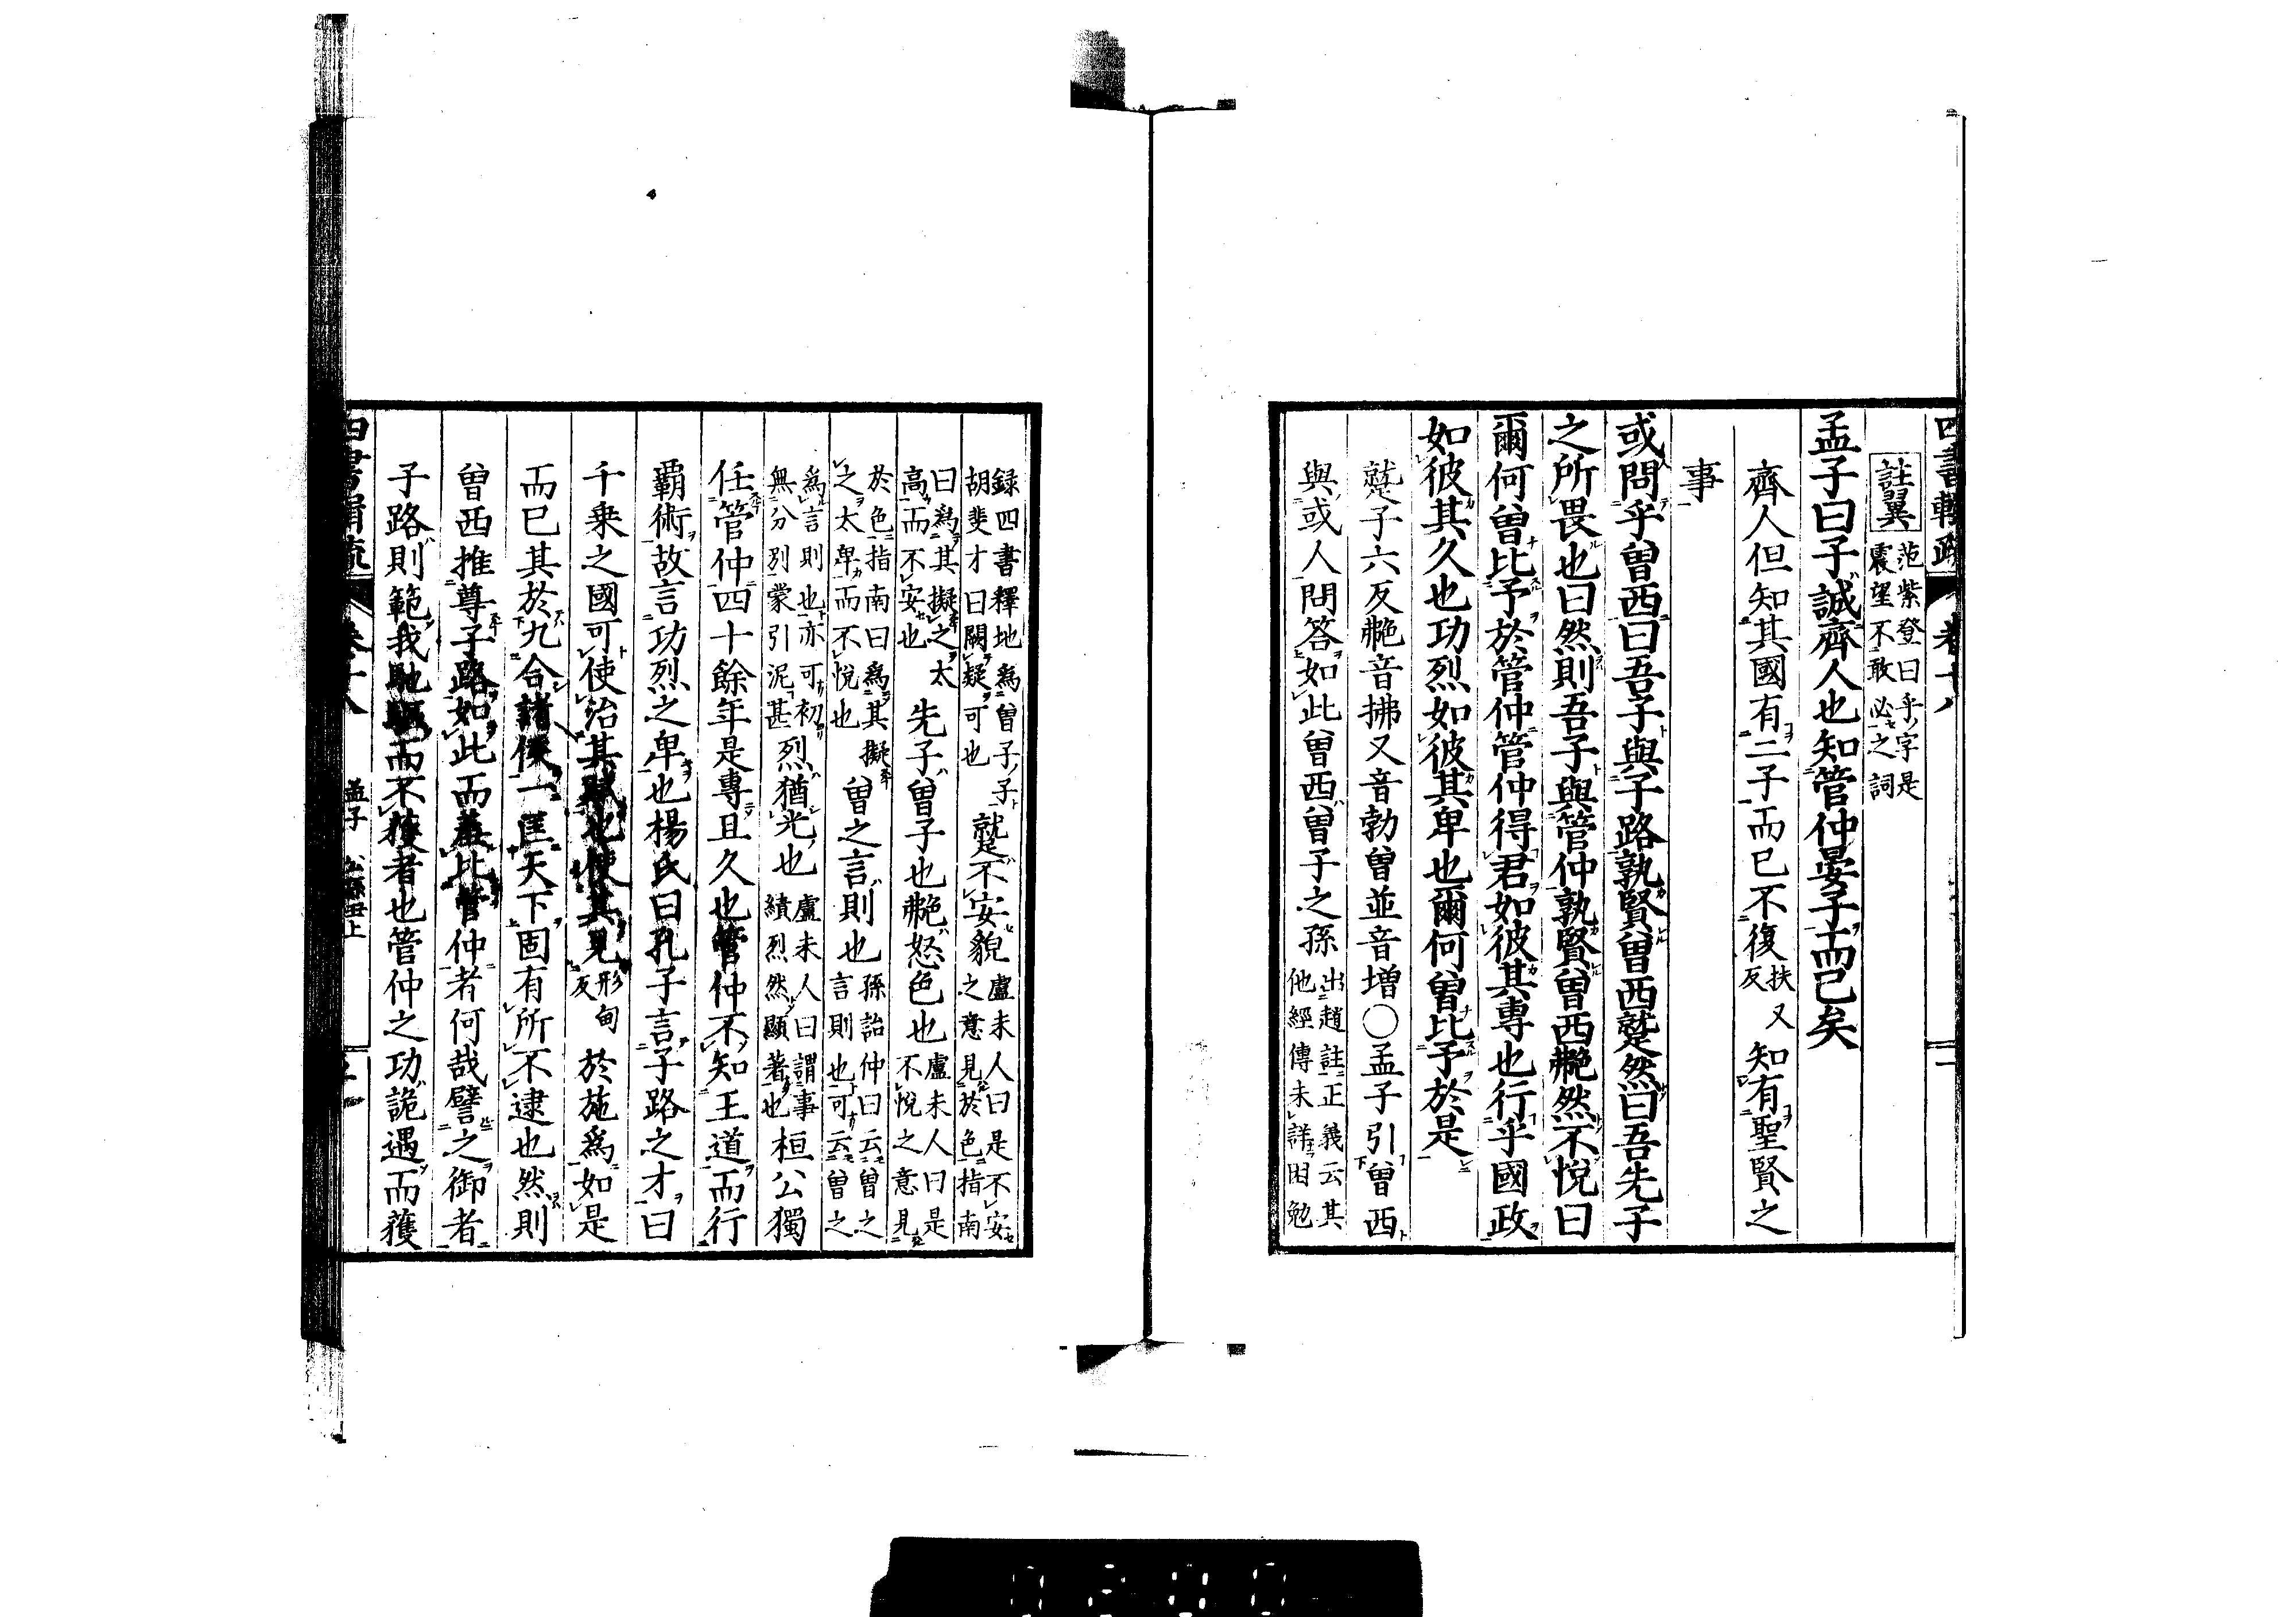 四書輯疏 卷十八
註翼 范紫登曰乎字是
震望不敢必之詞
孟子曰子誠齊人也知管仲晏子而已矣
齊人但知其國有二子而已不復扶又
反知有聖賢之
事
或問乎曾西曰吾子與子路孰賢曾西蹵然曰吾先子
之所畏也曰然則吾子與管仲孰賢曾西艴然不悅曰
爾何曾比予於管仲管仲得君如彼其專也行乎國政
如彼其久也功烈如彼其卑也爾何曾比予於是
蹵子六反艴音拂又音勃曾並音增○孟子引曾西
與或人問答如此曾西曾子之孫出趙註正義云其
他經傳未詳困勉
録四書釋地爲曾子子
胡斐才曰闕疑可也蹵不安貌盧未人曰是不安
之意見於色指南
曰爲其擬之太
高而不安也先子曾子也艴怒色也盧未人曰是
不悅之意見
於色指南曰爲其擬
之太卑而不悅也曾之言則也孫詒仲曰云曾之
言則也可云曾之
爲言則也亦可初
無分別蒙引泥甚烈猶光也盧未人曰謂事
績烈然顯著也桓公獨
任管仲四十餘年是專且久也管仲不知王道而行
覇術故言功烈之卑也楊氏曰孔子言子路之才曰
千乗之國可使治其賦也使其見形甸
反於施爲如是
而已其於九合諸侯一匡天下固有所不逮也然則
曾西推尊子路如此而羞比管仲者何哉譬之御者
子路則範我馳驅而不獲者也管仲之功詭遇而獲
四書輯疏 卷十八 孟子 公孫丑上